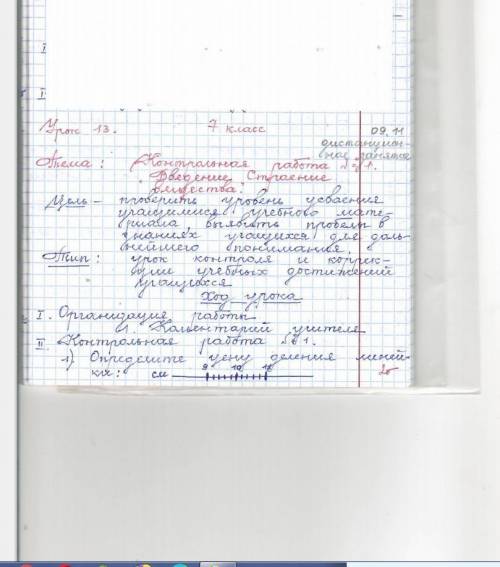 Урок 13. 7 класс 09.11
дистанцион-
ное занятие
Тема: Контрольная работа №1.
Введение. Строение
вещества.
Цель - проверить уровень усвоения
учащимися учебного мате-
риала выявить пробелы в
знаниях учащихся для даль-
нейшего понимания.
Тип: урок контроля и коррек-
ции учебных достижений
учащихся
Ход урока
I. Организация работы
1. Коментарий учителя
II. Контрольная работа №1.
1) Определите цену деления линей-
ких: см 8 10 12 2б